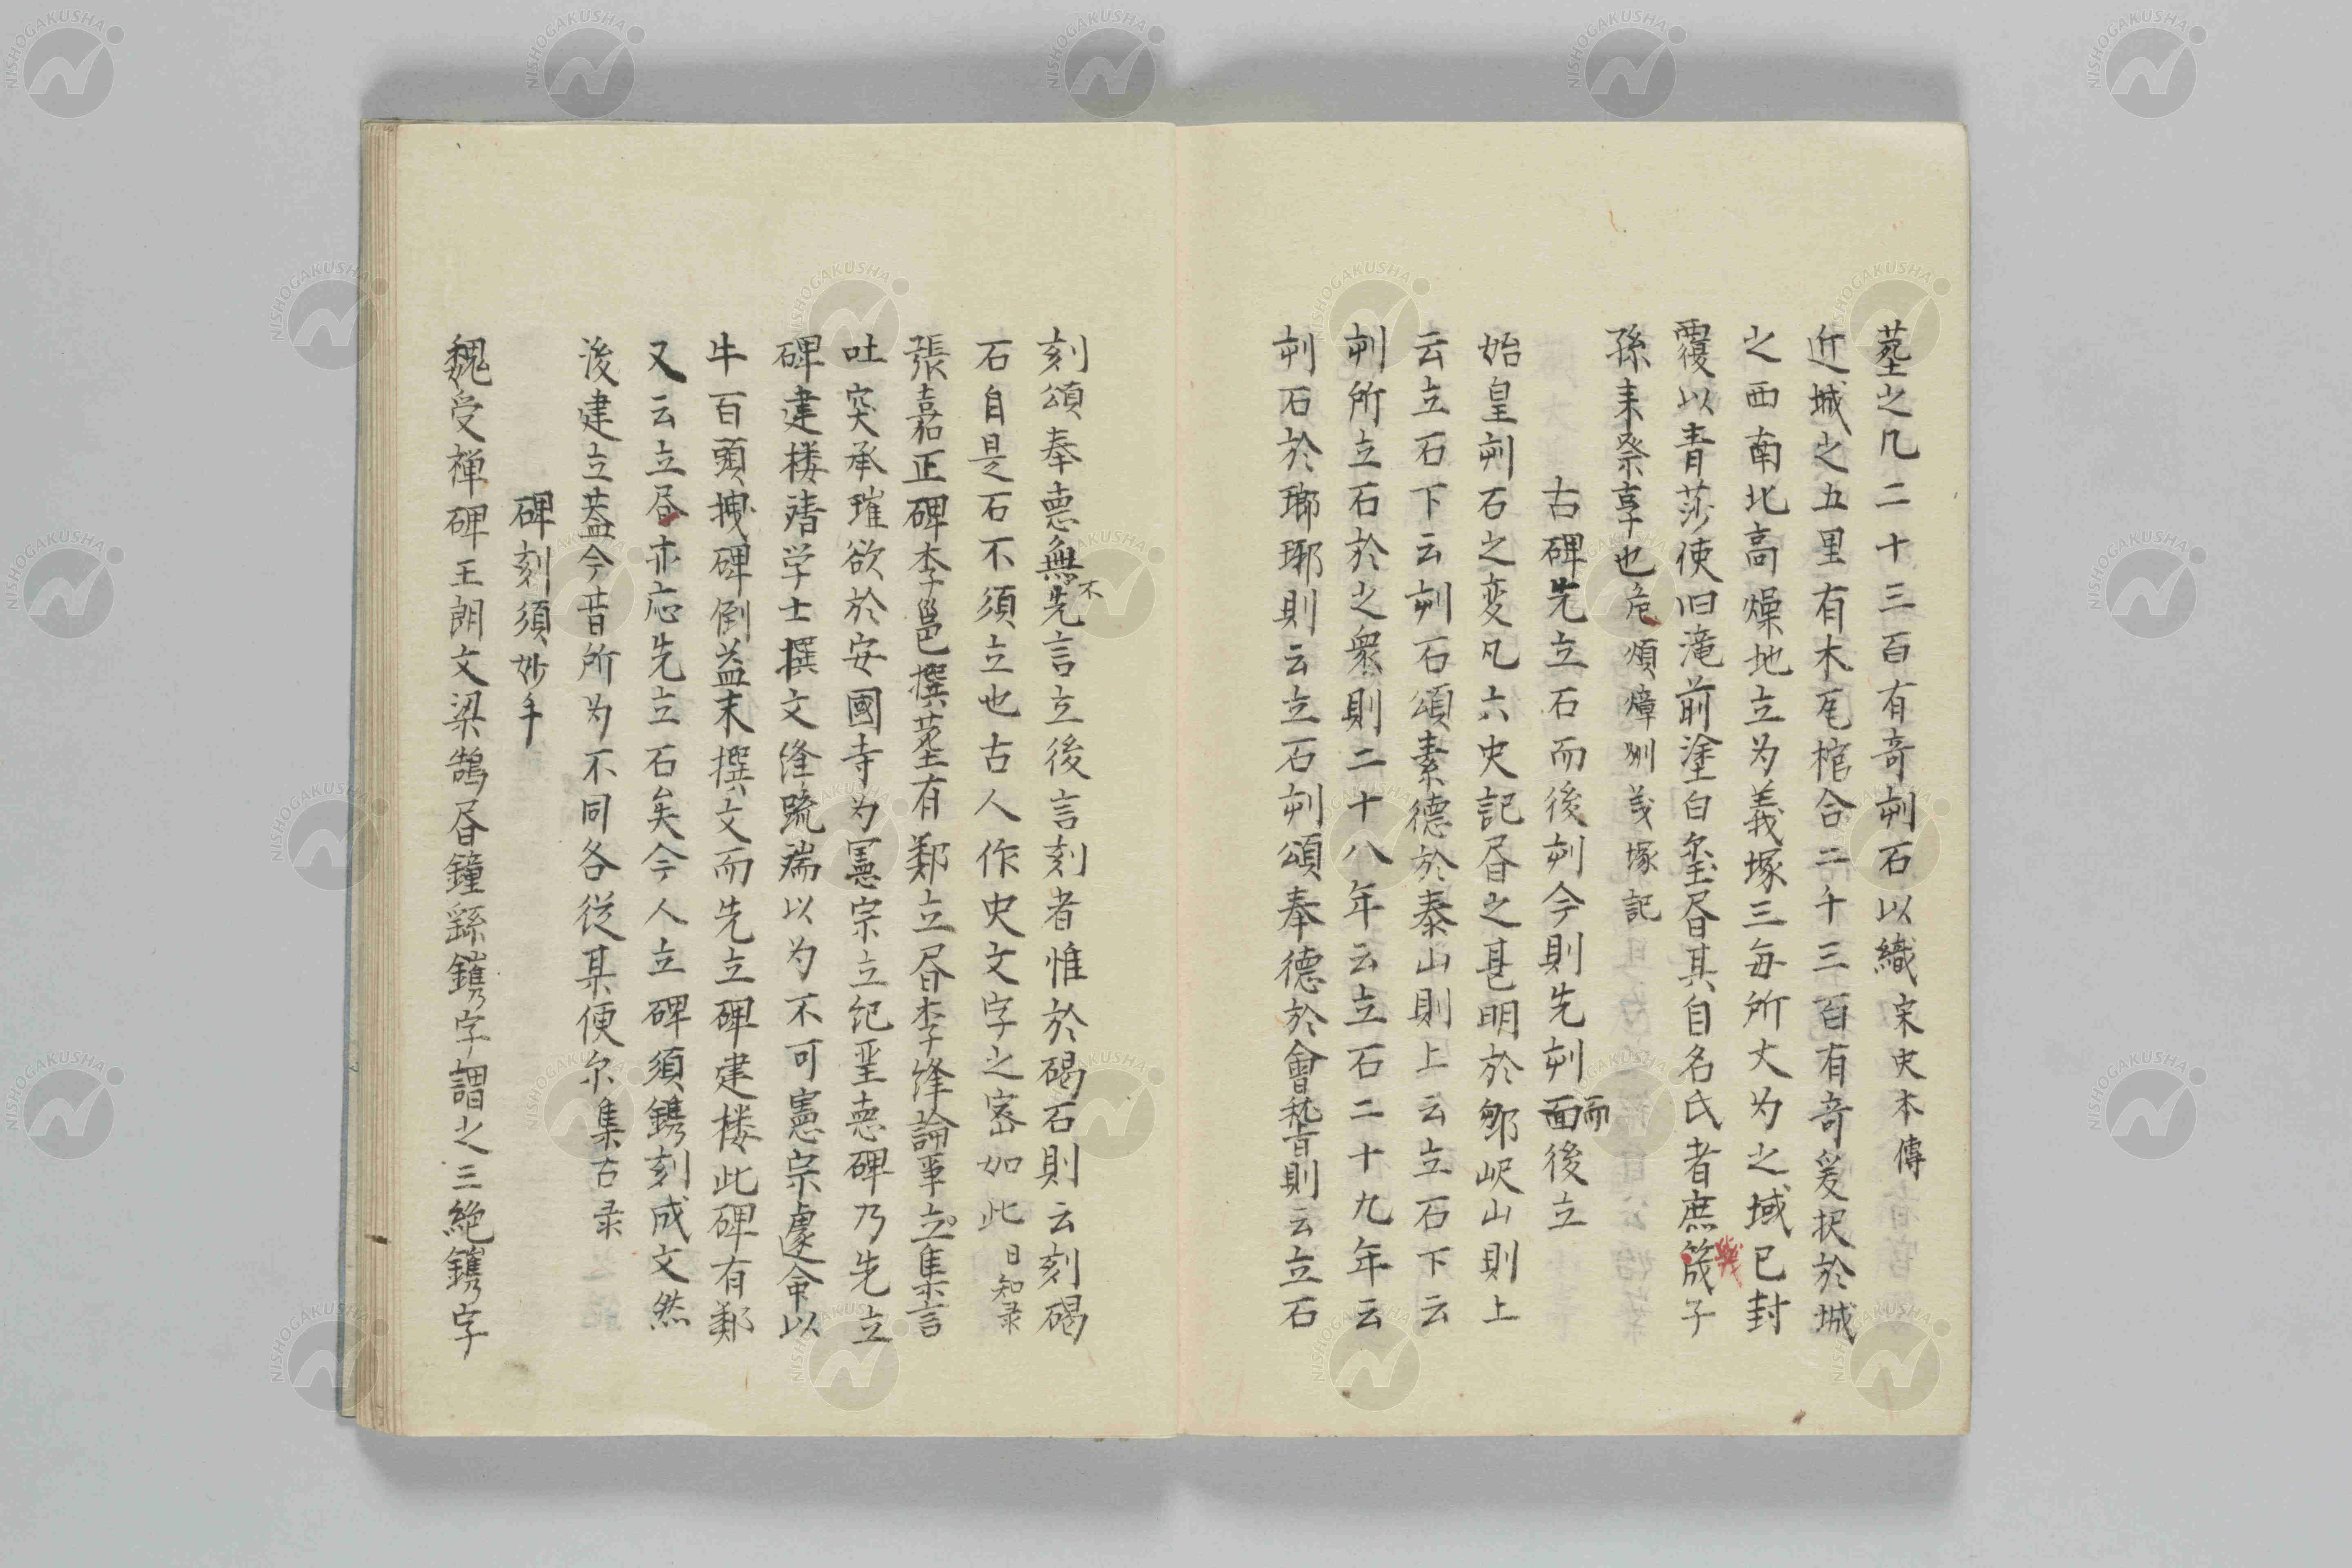 墓之凡二十三百有奇刻石以織宋史本傳
近城之五里有木瓦棺合二千三百有奇爰択於城
之西南北高燥地立为義塚三毎所大为之域已封
覆以青莎使旧滝前塗白堊昏其自名氏者庶幾子
孫来祭享也危頌 州義塚記
古碑先立石而後刻今則先刻而後立
始皇刻石之変凡六史記昏之甚明於鄒嶧山則上
云立石下云刻石頌素德於泰山則上云立石下云
刻所立石於之罘則二十八年云立石二十九年云
刻石於瑯琊則云立石刻頌奉德於會稽則云立石
刻頌奉悳無不先言立後言刻者惟於碣石則云刻碣
石自是石不須立也古人作史文字之密如此日知录
張嘉正碑李邕撰墓有鄭立昏李絳論事立集言
吐突承璀欲於安國寺为憲宗立紀聖悳碑乃先立
碑建楼請学士撰文絳疏瑞以为不可憲宗遽命以
牛百頭拽碑倒益末撰文而先立碑建楼此碑有鄭
又云立昏亦応先立石矣今人立碑須鐫刻成文然
後建立盖今昔所为不同各従其便尔集古录
碑刻須妙手
魏受禅碑王朗文梁鵠昏鐘繇鐫字謂之三絶鐫字